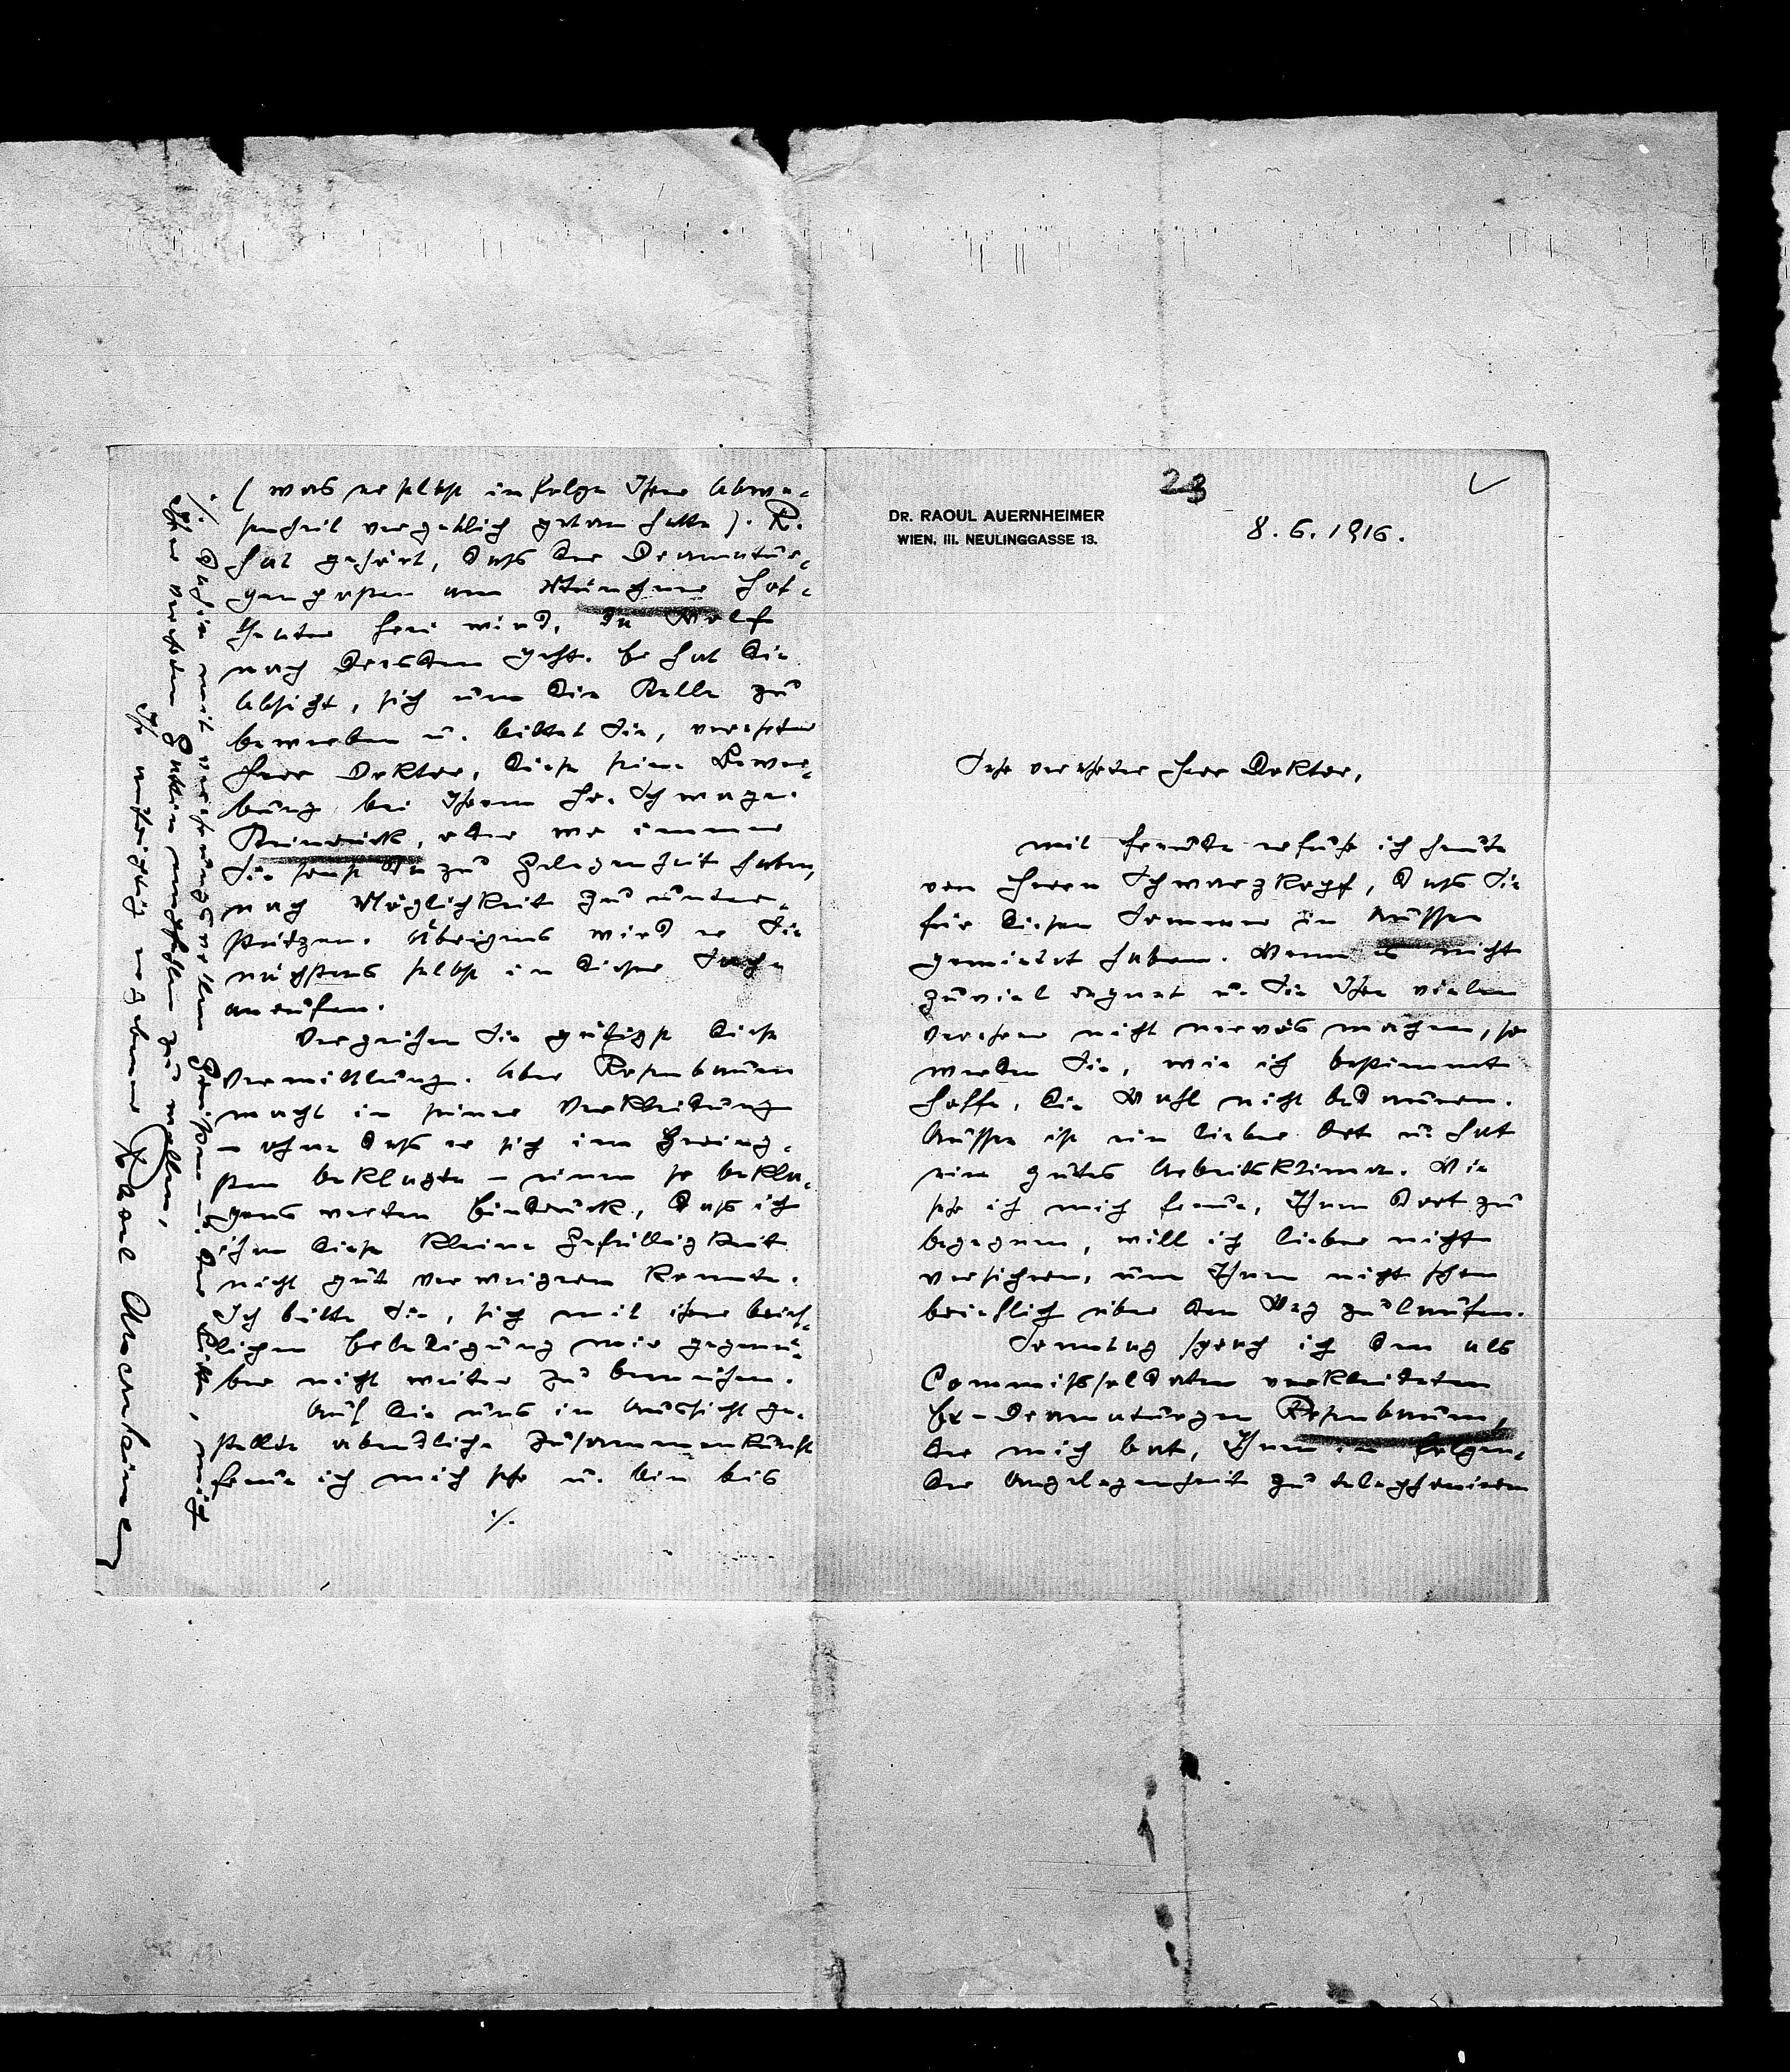 23
DR. RAOUL AUERNHEIMER
WIEN, III. NEULINGGASSE 13.
8. 6. 1916.
Sehr verehrter Herr Doktor,
mit Freude erfuhr ich heute
von Herrn Schwarzkopf, daß Sie
für diesen Sommer in Aussee
gemietet haben. Wenn es nicht
zuviel regnet u. Sie Ihre vielen
Verehrer nicht nervös machen, so
werden Sie, wie ich bestimmt
hoffe, die Wahl nicht bedauern.
Aussee ist ein lieber Ort u. hat
ein gutes Arbeitsklima. Wie
sehr ich mich freue, Ihnen dort zu
begegnen, will ich lieber nicht
versichern, um Ihnen nicht schon
brieflich über den Weg zu laufen.
Sonntag sprach ich den als
Commißsoldaten verkleideten
Ex-Dramaturgen Rosenbaum,
der mich bat, Ihnen in folgen-
der Angelegenheit zu telephonieren
(was er selbst infolge Ihrer Abwe-
senheit vergeblich getan hatte). R.
hat gehört, daß der Dramatur-
genposten am Münchner Hof-
theater frei wird, da Wolf
nach Dresden geht. Er hat die
Absicht, sich um die Stelle zu
bewerben u. bittet Sie, verehrter
Herr Doktor, diese seine Bewer-
bung bei Ihrem Hr. Schwager
Steinrück, oder wo immer
Sie sonst da zu Gelegenheit haben,
nach Möglichkeit zu unter-
stützen. Übrigens wird er Sie
nächstens selbst in dieser Sache
anrufen.
Verzeihen Sie gütigst diese
Vermittlung. Aber Rosenbaum
macht in seiner Verkleidung
– ohne daß er sich im Gering-
sten beklagte – einen so bekla-
genswerten Eindruck, daß ich
ihm diese kleine Gefälligkeit
nicht gut verweigern konnte.
Ich bitte Sie, sich mit ihrer brief-
lichen Erledigung mir gegenü-
ber nicht weiter zu bemühen.
Auf die uns in Aussicht ge-
stellte abendliche Zusammenkunft
freue ich mich sehr u. bin bis
./.
./. dahin mit verehrungsvollen Grüßen u. der Bitte, mich
Ihrer verehrten Gattin empfehlen zu wollen,
Ihr aufrichtig ergebener
Raoul Auernheimer